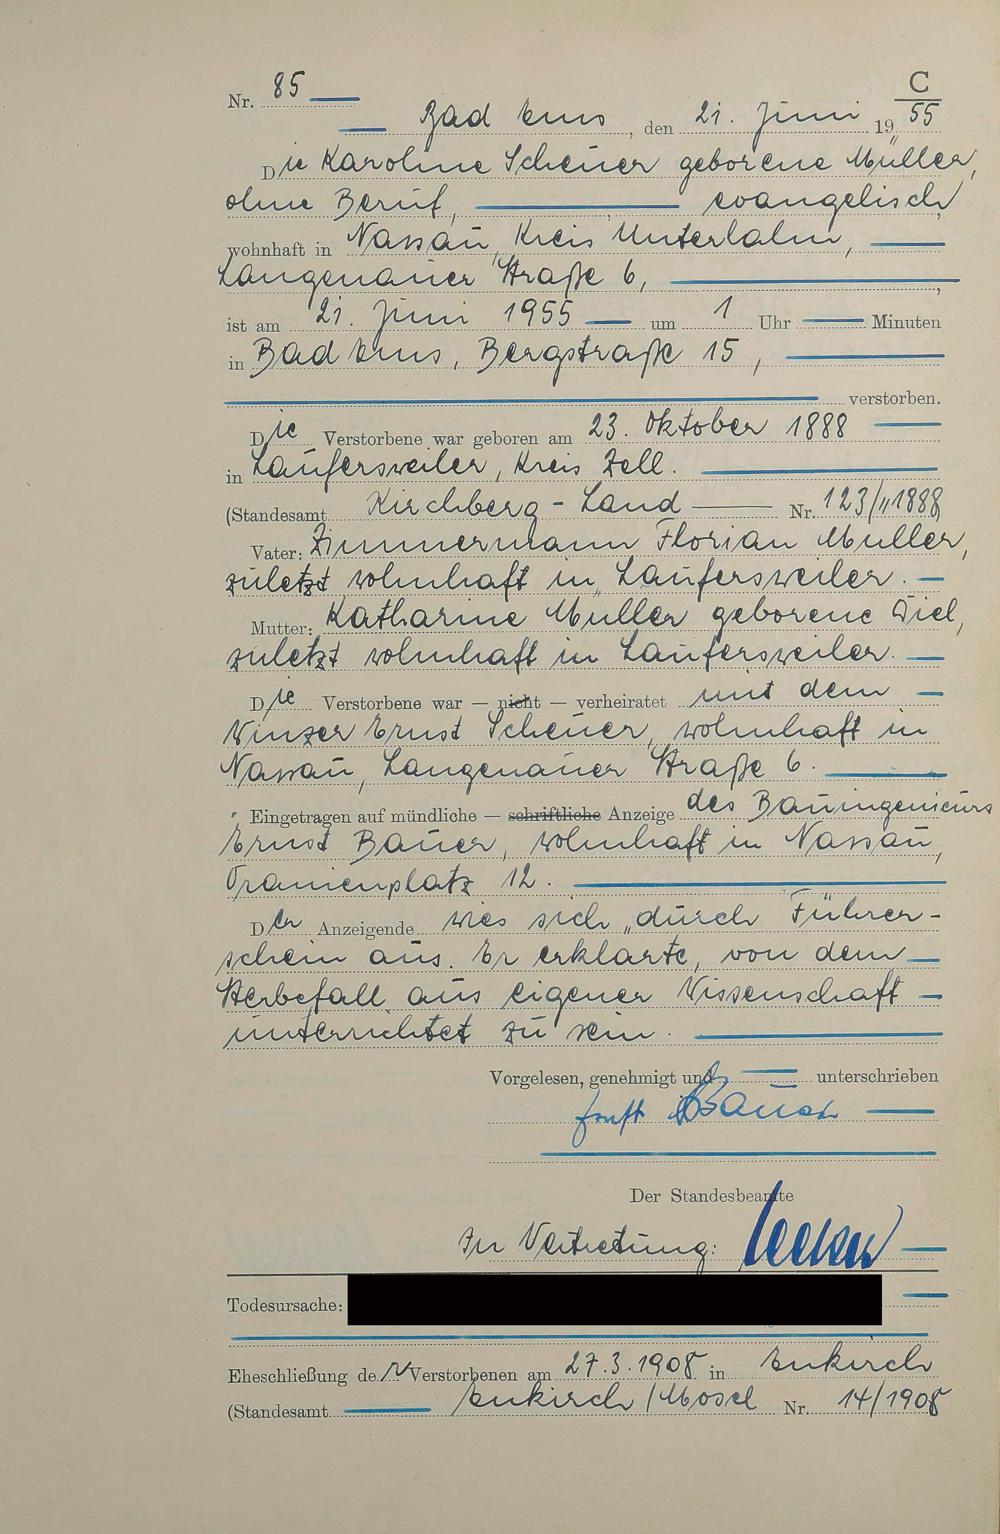 C
Nr. 85
Bad Ems, den 21. Juni 1955
Die Karoline Scheuer geborene Müller,
ohne Beruf, evangelisch,
wohnhaft in Nassau, Kreis Unterlahn,
Langenauer Straße 6,
ist am 21. Juni 1955 um 1 Uhr Minuten
in Bad Ems, Bergstraße 15,
verstorben.
Die Verstorbene war geboren am 23. Oktober 1888
in Laufersweiler, Kreis Zell.
(Standesamt Kirchberg-Land Nr. 123/1888
Vater: Zimmermann Florian Müller,
zuletzt wohnhaft in Laufersweiler.
Mutter: Katharine Müller geborene Diel,
zuletzt wohnhaft in Laufersweiler.
Die Verstorbene war — nicht — verheiratet mit dem
Winzer Ernst Scheuer, wohnhaft in
Nassau, Langenauer Straße 6.
Eingetragen auf mündliche — schriftliche Anzeige des Bauingenieurs
Ernst Bauer, wohnhaft in Nassau,
Oranienplatz 12.
Der Anzeigende wies sich durch Führer-
schein aus. Er erklärte, von dem
Sterbefall aus eigener Wissenschaft
unterrichtet zu sein.
Vorgelesen, genehmigt und unterschrieben
Ernst Bauer
Der Standesbeamte
In Vertretung:
Todesursache:
Eheschließung der Verstorbenen am 27.3.1908 in Enkirch
(Standesamt Enkirch/Mosel Nr. 14/1908